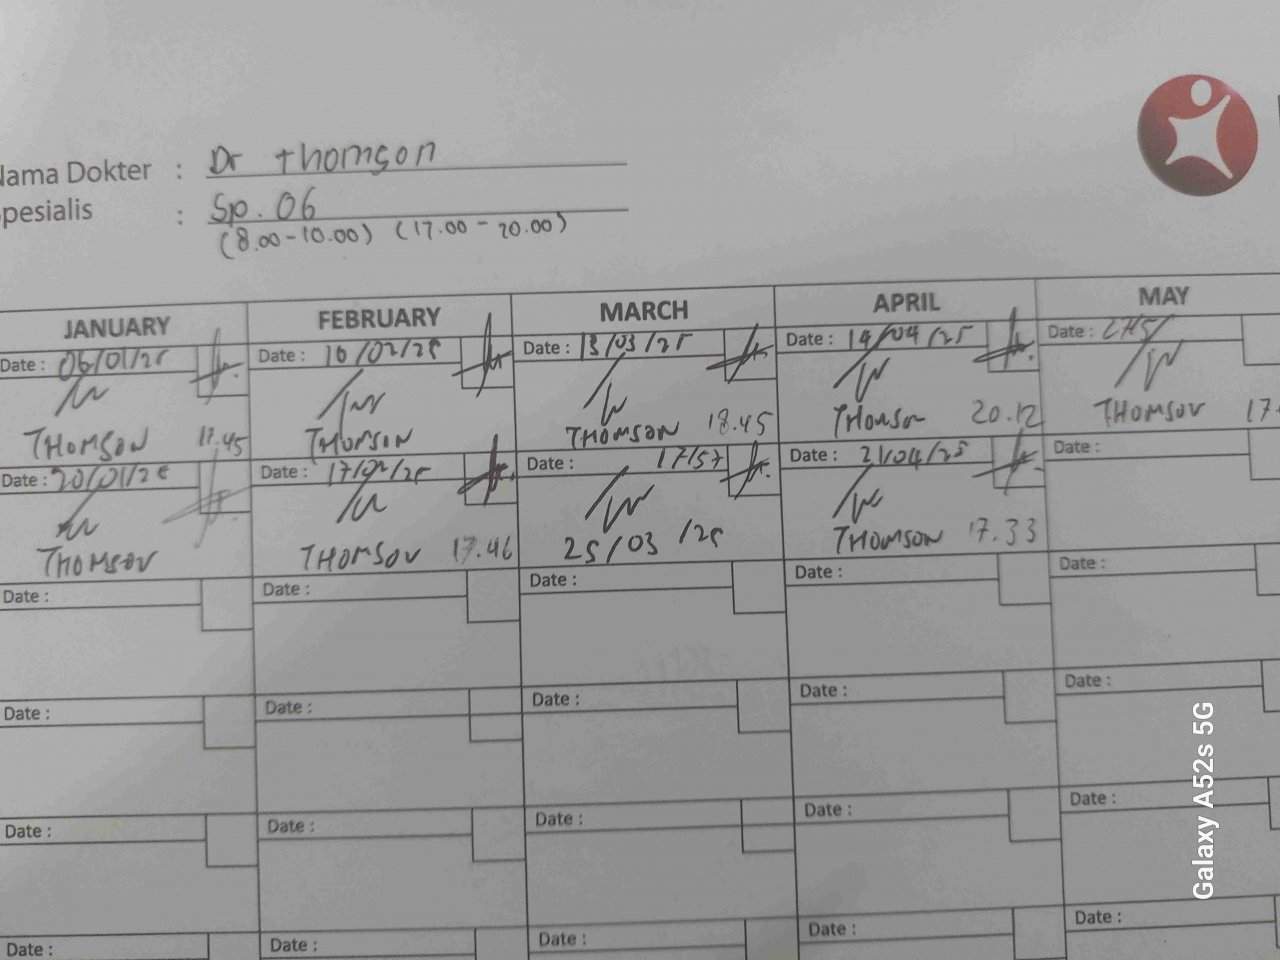 Nama Dokter : Dr Thomson
Spesialis : Sp. OG
(8.00-10.00) (17.00-20.00)
JANUARY FEBRUARY MARCH APRIL MAY
Date : 06/01/25 Date : 10/02/25 Date : 13/03/25 Date : 14/04/25 Date :
THOMSON 17.45 THOMSON THOMSON 18.45 THOMSON 20.12 THOMSON 17.
Date : 20/01/25 Date : 17/02/25 Date : 17/57 Date : 21/04/25 Date :
THOMSON THOMSON 17.46 25/03/25 THOMSON 17.33
Date : Date : Date : Date : Date :
Date : Date : Date : Date : Date :
Date : Date : Date : Date : Date :
Date : Date : Date : Date : Date :
Galaxy A52s 5G